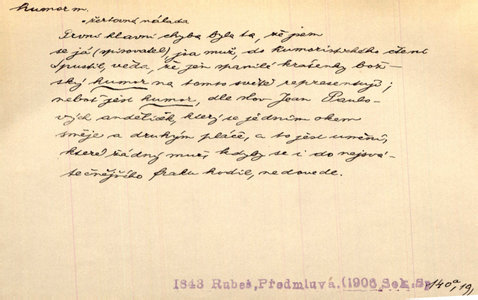 humor m.
žertovná nálada
První hlavní chyba byla ta, že jsem
se já (spisovatel) jsa muž, do humoristického čtení
spustil, věda, že jen spanilé krásenky bož-
ský humor na tomto světě representují;
neboť jest humor, dle slov Jean Paulo-
vých andělíček, který se jedním okem
směje a druhým pláče, a to jest umění,
které žádný muž, kdyby se i do nejsvá-
tečnějšího fraku hodil, nedovede.
1843 Rubeš, Předmluva. (1906, Sek. Sp. 140a, 19)